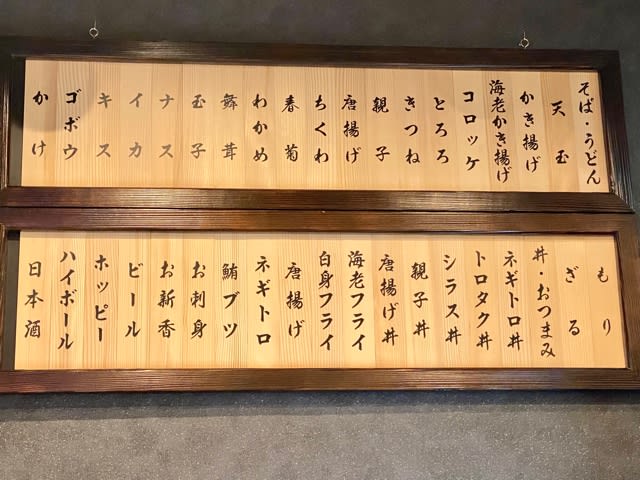 そば・うどん
天玉
かき揚げ
海老かき揚げ
コロッケ
とろろ
きつね
親子
唐揚げ
ちくわ
春菊
わかめ
舞茸
玉子
ナス
イカ
キス
ゴボウ
かけ
もり
ざる
丼・おつまみ
ネギトロ丼
トロタク丼
シラス丼
親子丼
唐揚げ丼
海老フライ
白身フライ
唐揚げ
ネギトロ
鮪ブツ
お刺身
お新香
ビール
ホッピー
ハイボール
日本酒